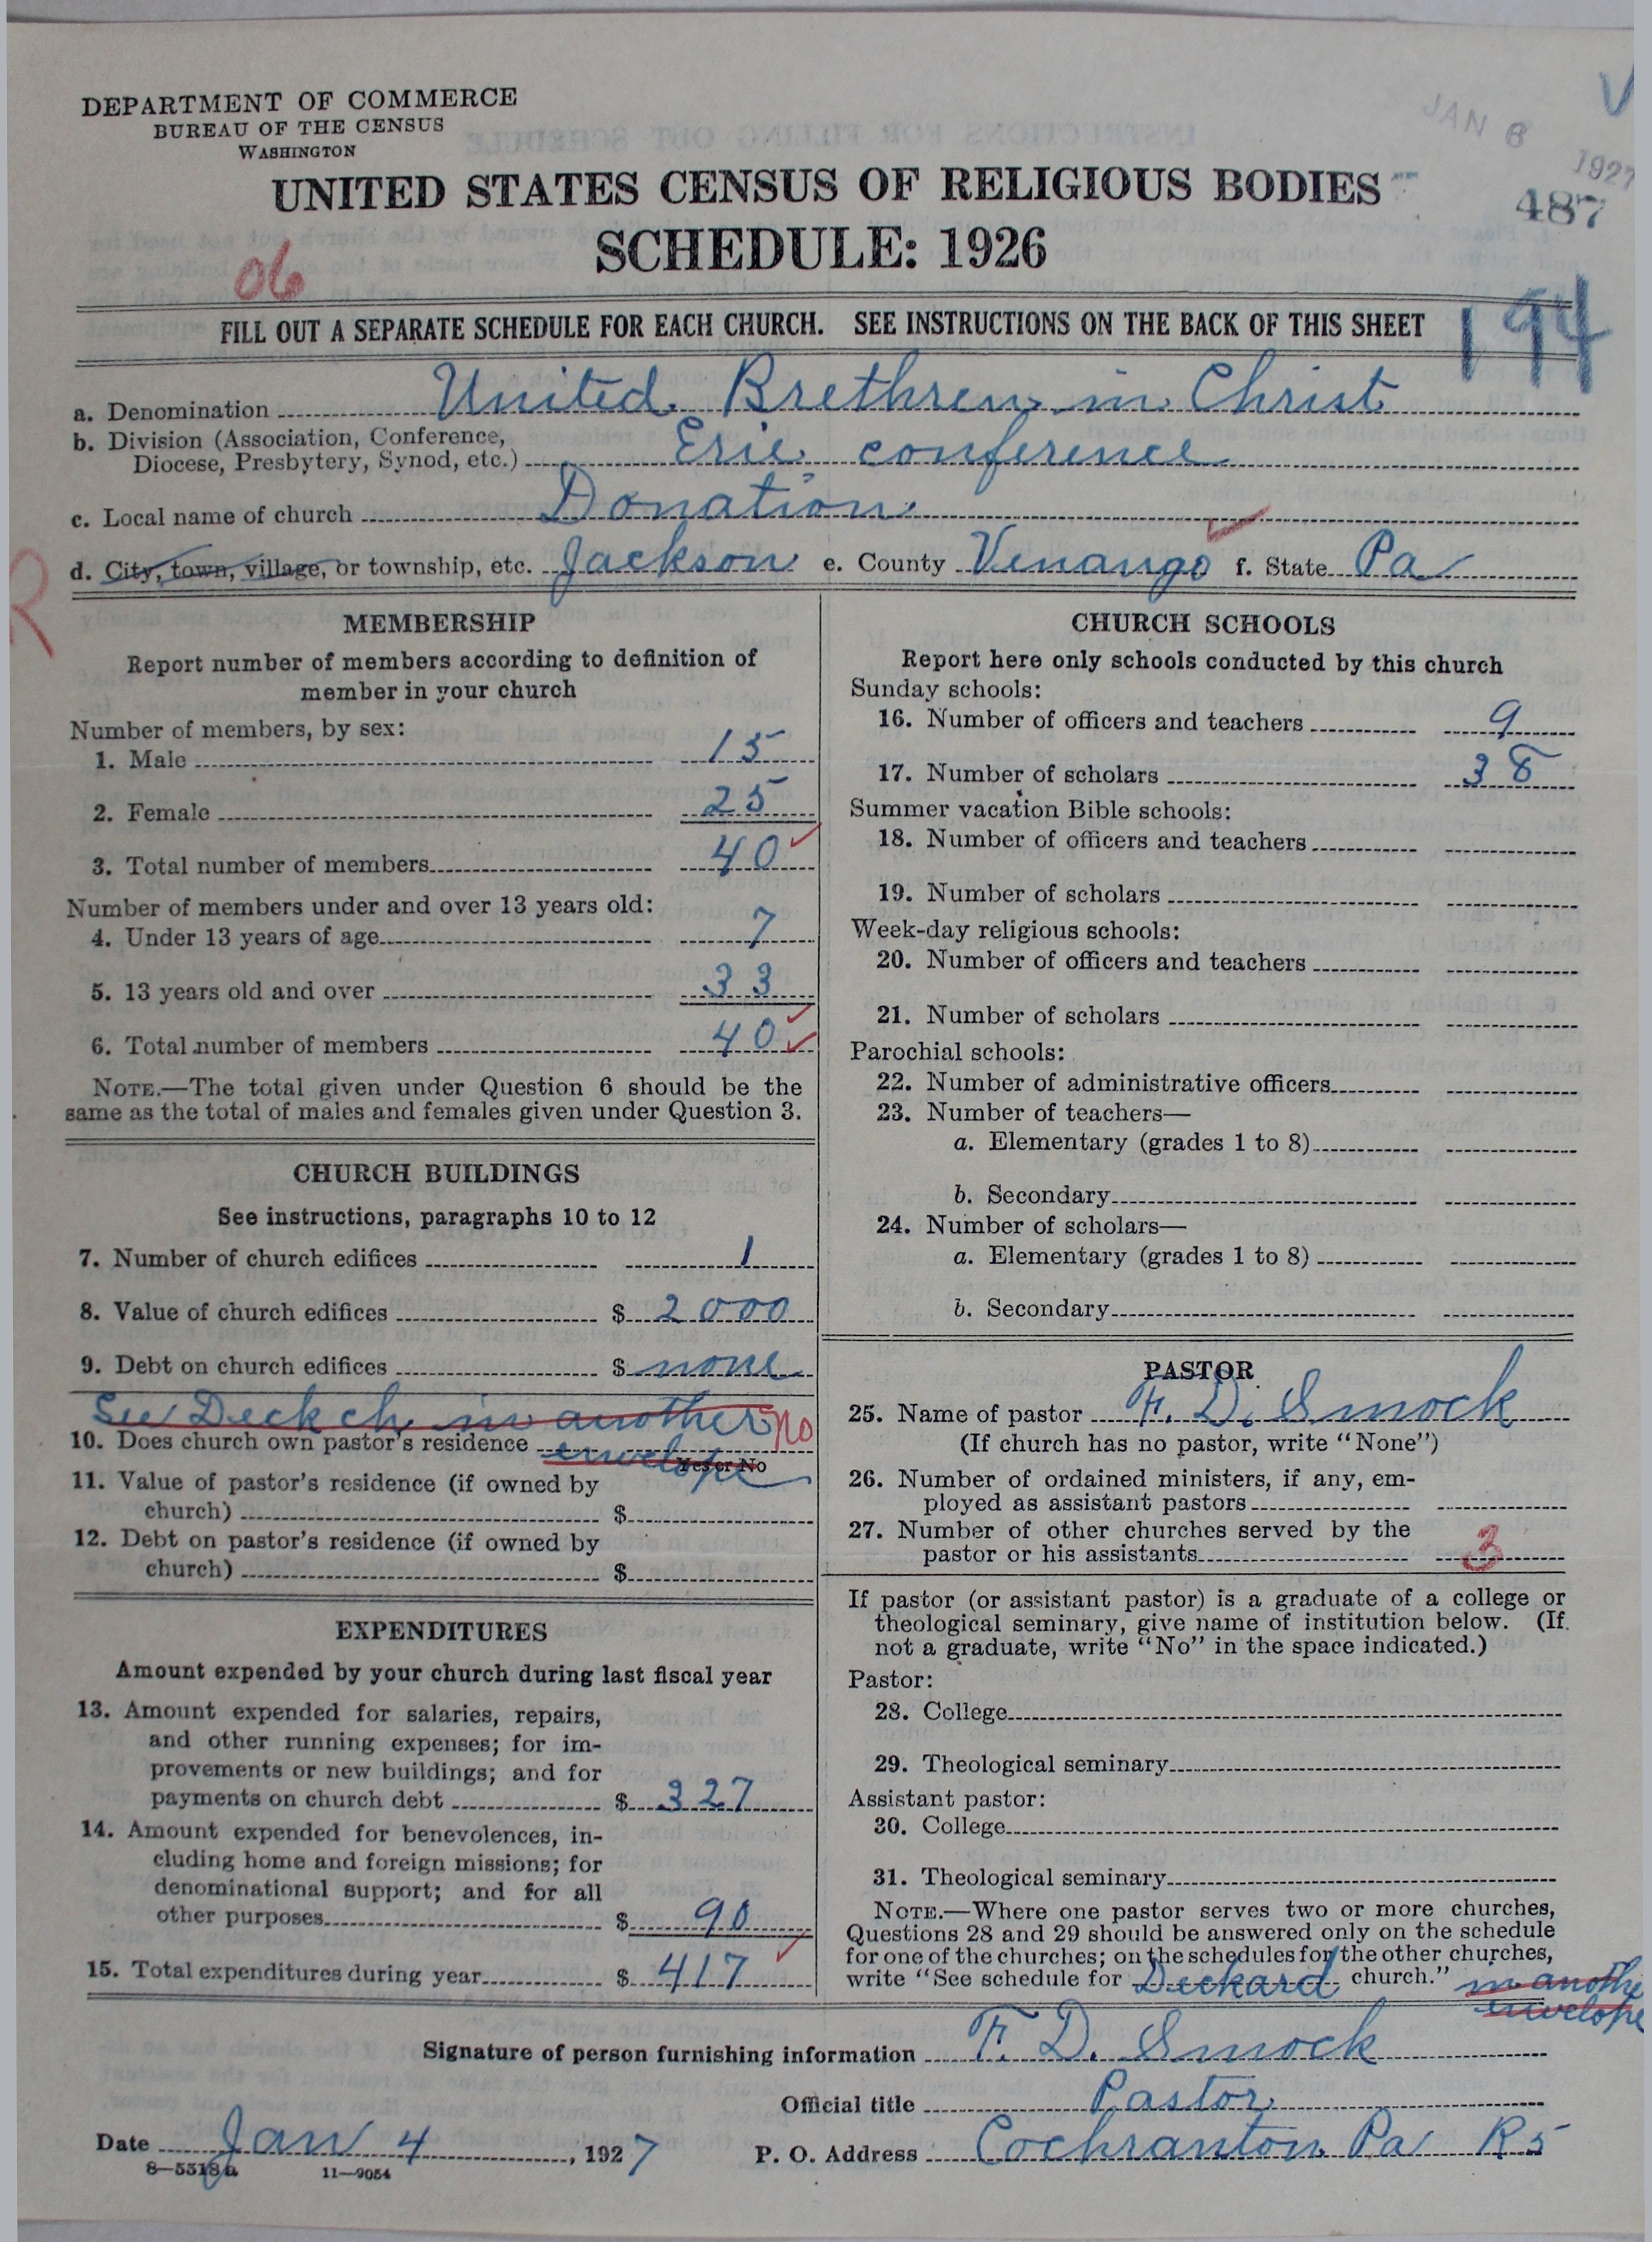 DEPARTMENT OF COMMERCE
BUREAU OF THE CENSUS
WASHINGTON
JAN 6 1927
UNITED STATES CENSUS OF RELIGIOUS BODIES
487
SCHEDULE: 1926
06
194
FILL OUT A SEPARATE SCHEDULE FOR EACH CHURCH. SEE INSTRUCTIONS ON THE BACK OF THIS SHEET
a. Denomination United Brethren in Christ
b. Division (Association, Conference,
Diocese, Presbytery, Synod, etc.) Erie conference
c. Local name of church Donation
d. City, town, village, or township, etc. Jackson e. County Venango f. State Pa
R
MEMBERSHIP
Report number of members according to definition of
member in your church
Number of members, by sex:
1. Male 15
2. Female 25
3. Total number of members 40
Number of members under and over 13 years old:
4. Under 13 years of age 7
5. 13 years old and over 33
6. Total number of members 40
NOTE.—The total given under Question 6 should be the
same as the total of males and females given under Question 3.
CHURCH BUILDINGS
See instructions, paragraphs 10 to 12
7. Number of church edifices 1
8. Value of church edifices $ 2000
9. Debt on church edifices $ none
See Deck ch in another
10. Does church own pastor's residence no
envelope
Yes or No
11. Value of pastor's residence (if owned by
church) $
12. Debt on pastor's residence (if owned by
church) $
EXPENDITURES
Amount expended by your church during last fiscal year
13. Amount expended for salaries, repairs,
and other running expenses; for im-
provements or new buildings; and for
payments on church debt $ 327
14. Amount expended for benevolences, in-
cluding home and foreign missions; for
denominational support; and for all
other purposes $ 90
15. Total expenditures during year $ 417
CHURCH SCHOOLS
Report here only schools conducted by this church
Sunday schools:
16. Number of officers and teachers 9
17. Number of scholars 38
Summer vacation Bible schools:
18. Number of officers and teachers
19. Number of scholars
Week-day religious schools:
20. Number of officers and teachers
21. Number of scholars
Parochial schools:
22. Number of administrative officers
23. Number of teachers—
a. Elementary (grades 1 to 8)
b. Secondary
24. Number of scholars—
a. Elementary (grades 1 to 8)
b. Secondary
PASTOR
25. Name of pastor F. D. Smock
(If church has no pastor, write "None")
26. Number of ordained ministers, if any, em-
ployed as assistant pastors
27. Number of other churches served by the
pastor or his assistants 3
If pastor (or assistant pastor) is a graduate of a college or
theological seminary, give name of institution below. (If
not a graduate, write "No" in the space indicated.)
Pastor:
28. College
29. Theological seminary
Assistant pastor:
30. College
31. Theological seminary
NOTE.—Where one pastor serves two or more churches,
Questions 28 and 29 should be answered only on the schedule
for one of the churches; on the schedules for the other churches,
write "See schedule for Deckard church." in anothe
envelope
Signature of person furnishing information F. D. Smock
Official title Pastor
Date Jan 4, 1927 P. O. Address Cochranton Pa R5
8—5518a 11—9054